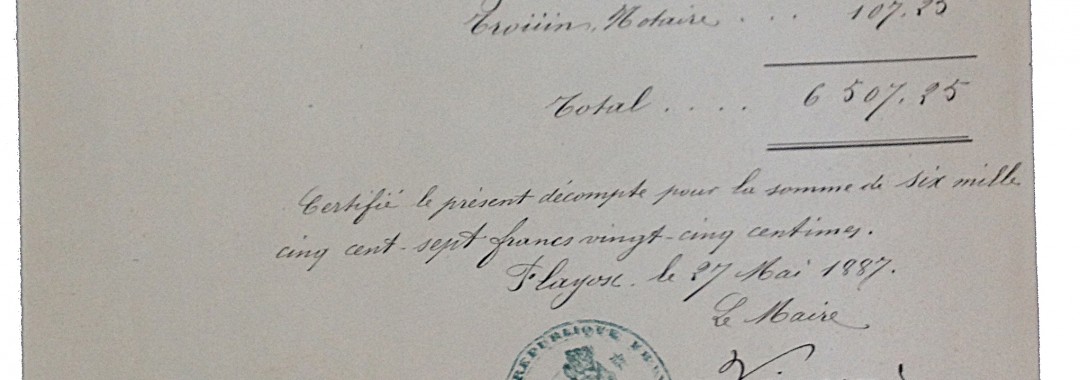 Trouin, Notaire . . . 107.25
Total . . . . 6 507.25
Certifié le présent décompte pour la somme de six mille
cinq cent-sept francs vingt-cinq centimes.
Flayosc. le 27 Mai 1887.
Le Maire
REPUBLIQUE FR